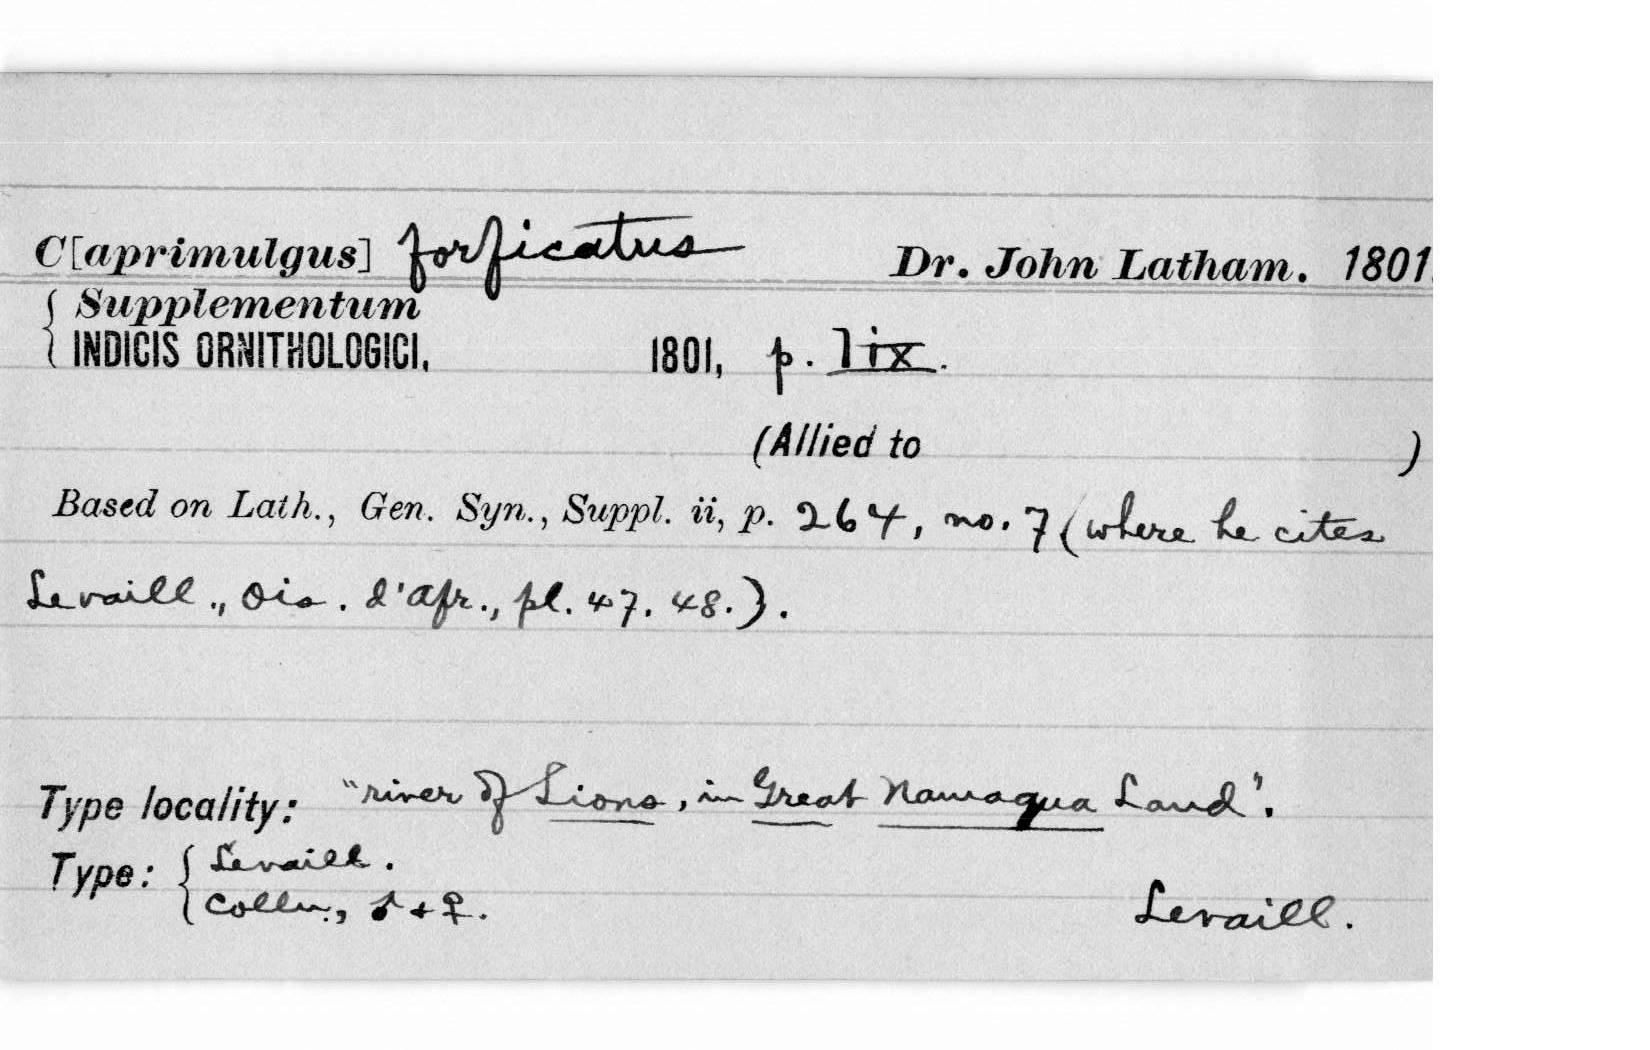 C[aprimulgus] forficatus Dr. John Latham. 1801.
{ Supplementum
INDICIS ORNITHOLOGICI, 1801, p. lix.
(Allied to )
Based on Lath., Gen. Syn., Suppl. ii, p. 264, no. 7 (where he cites
Levaill., Ois. d'Afr., pl. 47. 48.).
Type locality: "river of Lions, in Great Namaqua Land".
Type: { Levaill.
Colln., ♂ + ♀. Levaill.